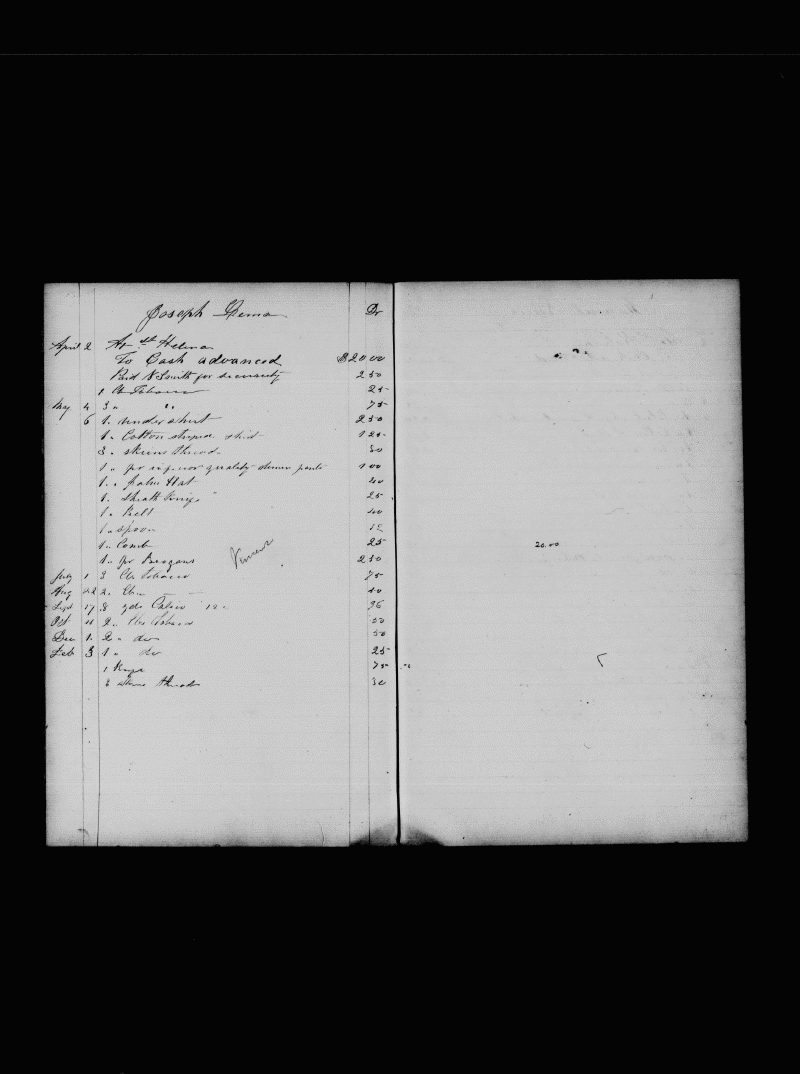 Joseph Dr
April 2 At St Helena
To Cash advanced $20 00
Paid N Smith for security 2 50
1 lb Tobacco 25
May 4 3 " " 75
6 1 " undershirt 2 50
1 " Cotton striped shirt 1 25
3 " skeins thread 30
1 " pr inferior quality denim pants 1 00
1 " palm Hat 40
1 " Sheath Knife 25
1 " Belt 40
1 " spoon
1 " Comb 25
1 " pr Brogans 2 50
July 1 3 lbs Tobacco 75
Aug 22 2 " 
Sept 17 8 yds Calico 12c 96
Oct 2 " lbs Tobacco 50
Dec 1 2 " do 50
Feb 3 1 " do 25
1 Knife 75
3 skeins thread 30
20.00